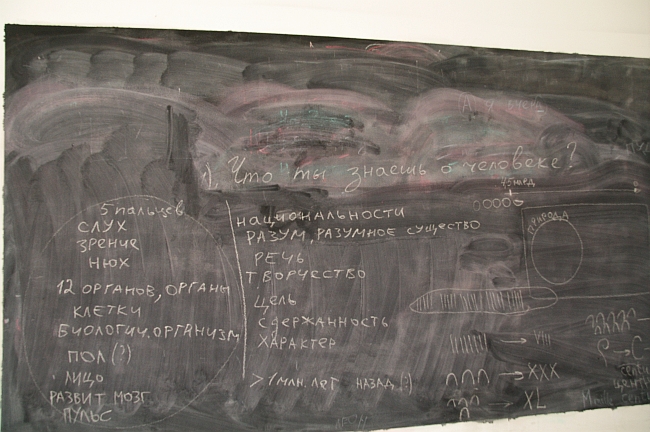 1) Что ты знаешь о человеке?
5 пальцев
СЛУХ
Зрение
НЮХ
12 ОРГАНОВ, ОРГАНЫ
КЛЕТКИ
БИОЛОГИЧ. ОРГАНИЗМ
ПОЛ (?)
ЛИЦО
РАЗВИТ МОЗГ
ПУЛЬС
НАЦИОНАЛЬНОСТИ
РАЗУМ, РАЗУМНОЕ СУЩЕСТВО
РЕЧЬ
ТВОРЧЕСТВО
ЦЕЛЬ
СДЕРЖАННОСТЬ
ХАРАКТЕР
> 1 МЛН. ЛЕТ НАЗАД (!)
ПРИРОДА
VIII
XXX
XL